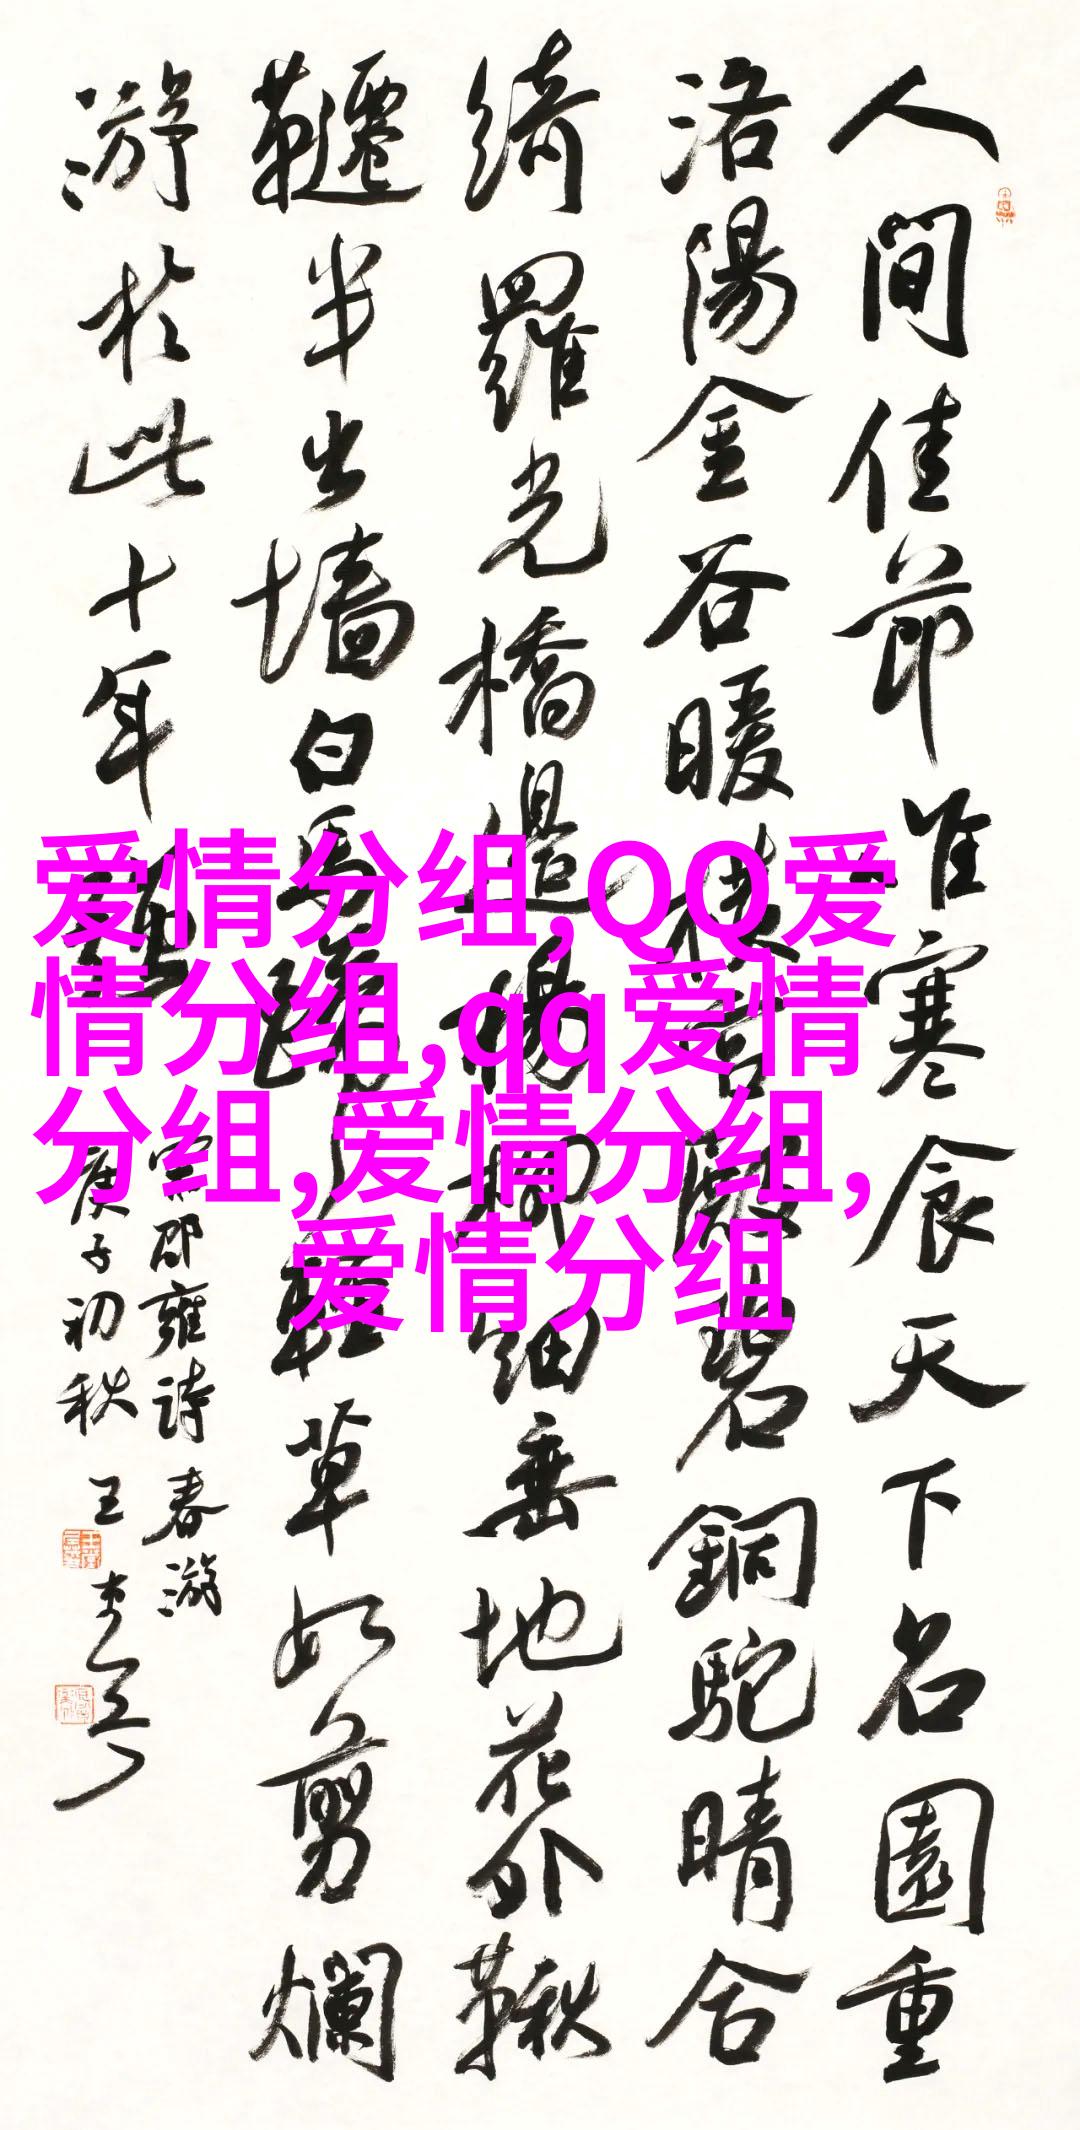 人間佳節唯寒食天下名園重
洛陽金谷暖橫殿碧銅駝晴合
綺羅光橋邊楊柳細垂地花外鞦
韆半出墻白馬蹄輕草如剪爛
游於此十年
宋邵雍詩春游
庚子初秋王
爱情分组,QQ爱
情分组,qq爱情
分组,爱情分组,
爱情分组